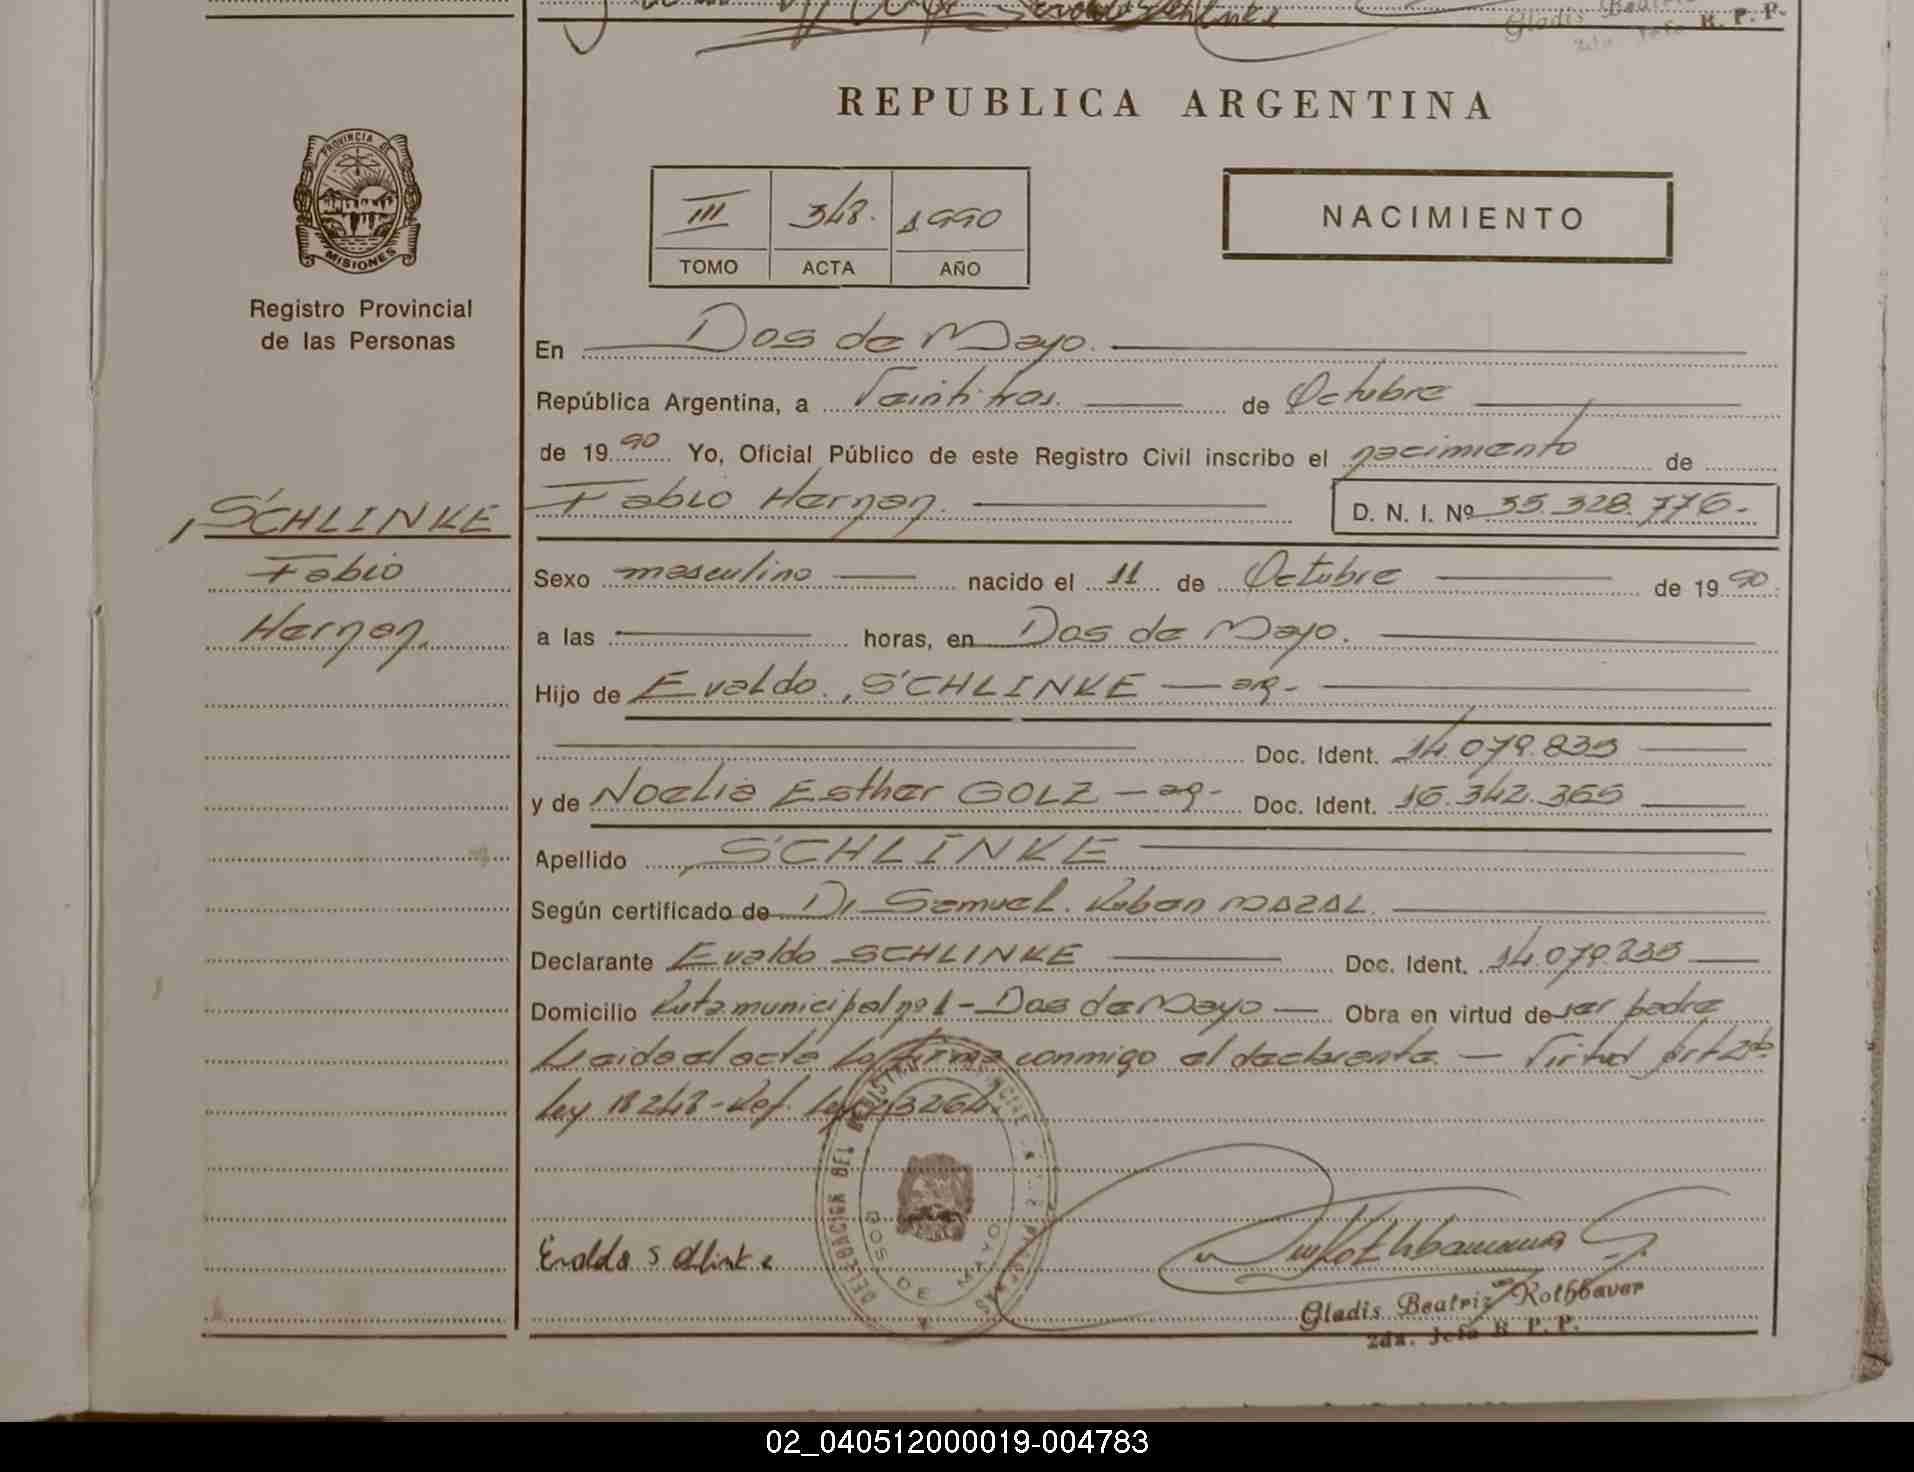 Gladis Beatriz
2da. Jefa R. P. P.
REPUBLICA ARGENTINA
PROVINCIA DE
MISIONES
III 348. 1990
TOMO ACTA AÑO
NACIMIENTO
Registro Provincial
de las Personas
En Dos de Mayo.
República Argentina, a Veintitres. de Octubre
de 1990 Yo, Oficial Público de este Registro Civil inscribo el nacimiento de
SCHLINKE
Fabio Hernan. D. N. I. Nº 35.328.776.-
Fabio
Hernan.
Sexo masculino nacido el 11 de Octubre de 1990
a las horas, en Dos de Mayo.
Hijo de Evaldo SCHLINKE — arg.-
Doc. Ident. 14.079.835
y de Noelia Esther GOLZ — arg.- Doc. Ident. 16.342.365
Apellido SCHLINKE
Según certificado de Dr Samuel. Ruban MAZAL.
Declarante Evaldo SCHLINKE Doc. Ident. 14.079.835
Domicilio Ruta municipal nº 1 - Dos de Mayo — Obra en virtud de ser padre
Leida el acta la firma conmigo el declarante. — Virtud Art 2do
Ley 18248 - Ref. Ley 23264
DELEGACION DEL REGISTRO PROVINCIAL DE LAS PERSONAS
DOS DE MAYO
Evaldo Schlinke
Gladis Beatriz Rothbaver
2da. Jefa R. P. P.
02_040512000019-004783